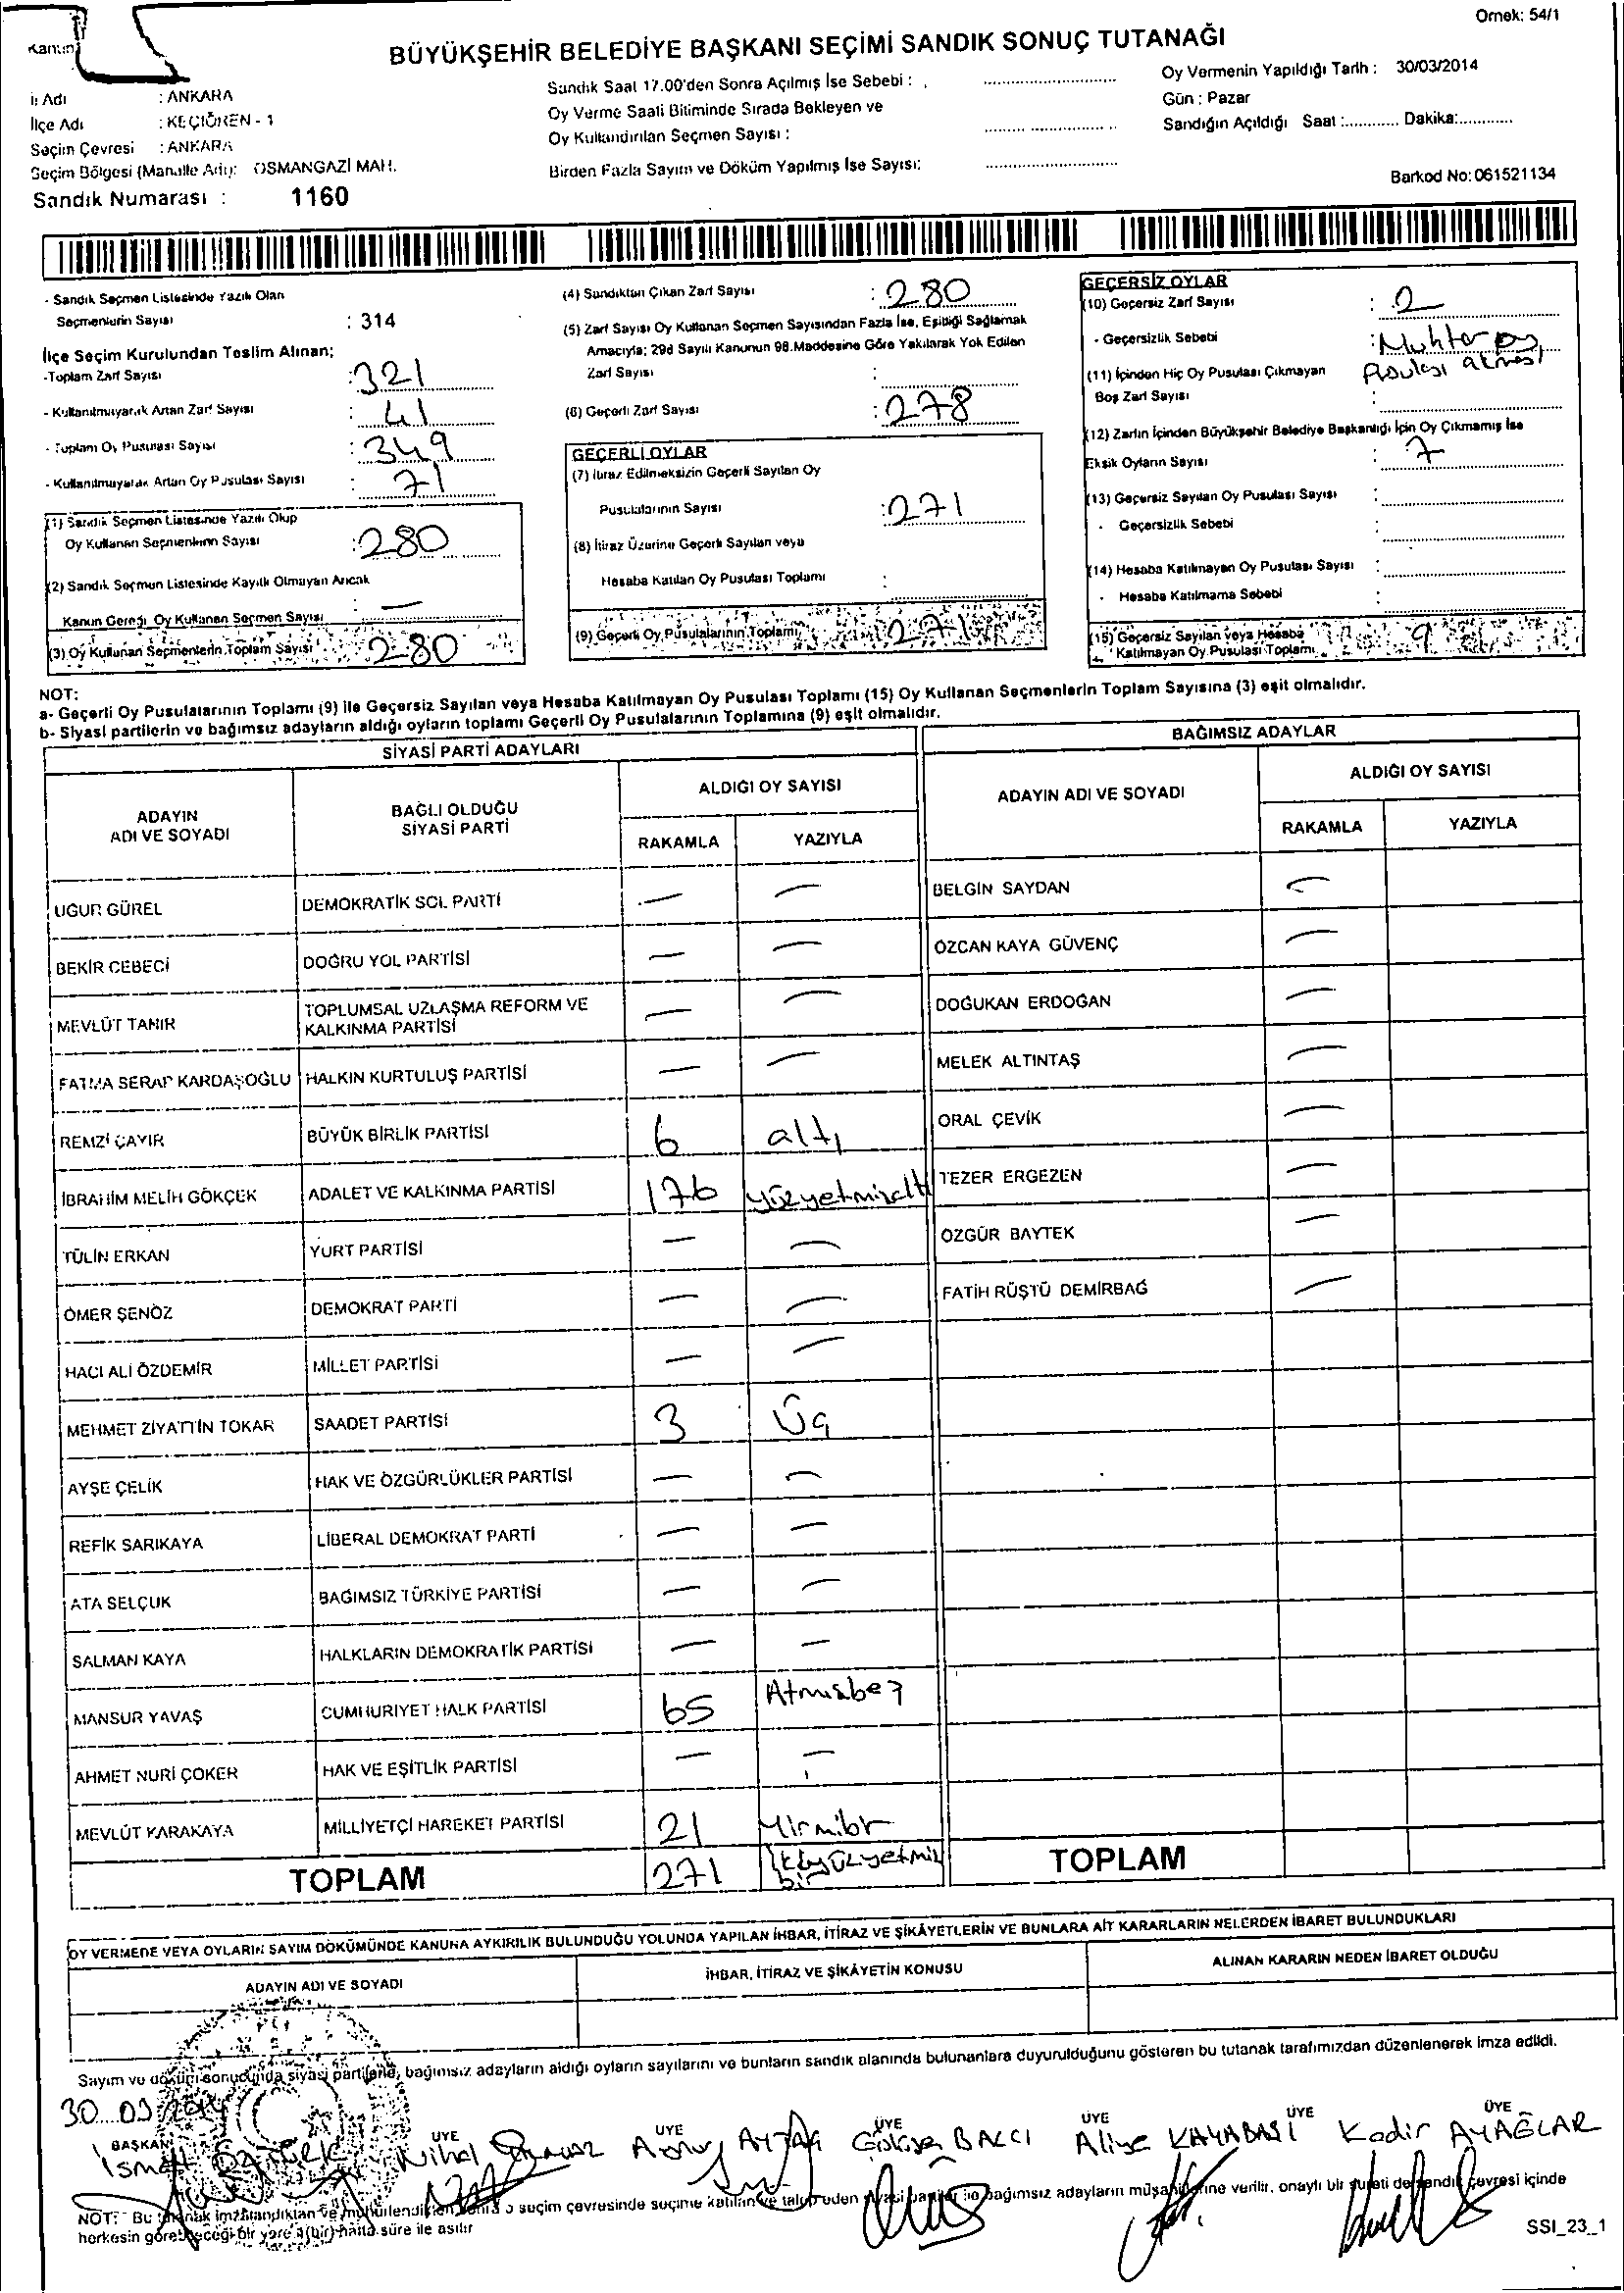 Örnek: 54/1
Kanun
BÜYÜKŞEHİR BELEDİYE BAŞKANI SEÇİMİ SANDIK SONUÇ TUTANAĞI
İl Adı : ANKARA
İlçe Adı : KEÇİÖREN - 1
Seçim Çevresi : ANKARA
Seçim Bölgesi (Mahalle Adı): OSMANGAZİ MAH.
Sandık Numarası : 1160
Sandık Saat 17.00'den Sonra Açılmış İse Sebebi :
Oy Verme Saati Bitiminde Sırada Bekleyen ve
Oy Kullandırılan Seçmen Sayısı :
Birden Fazla Sayım ve Döküm Yapılmış İse Sayısı:
Oy Vermenin Yapıldığı Tarih : 30/03/2014
Gün : Pazar
Sandığın Açıldığı Saat :............ Dakika:............
Barkod No: 061521134
- Sandık Seçmen Listesinde Yazılı Olan
Seçmenlerin Sayısı : 314
İlçe Seçim Kurulundan Teslim Alınan;
-Toplam Zarf Sayısı : 321
- Kullanılmayarak Artan Zarf Sayısı : 41
- Toplam Oy Pusulası Sayısı : 349
- Kullanılmayarak Artan Oy Pusulası Sayısı : 71
(1) Sandık Seçmen Listesinde Yazılı Olup
Oy Kullanan Seçmenlerin Sayısı : 280
(2) Sandık Seçmen Listesinde Kayıtlı Olmayan Ancak
Kanun Gereği Oy Kullanan Seçmen Sayısı : —
(3) Oy Kullanan Seçmenlerin Toplam Sayısı 280
(4) Sandıktan Çıkan Zarf Sayısı : 280
(5) Zarf Sayısı Oy Kullanan Seçmen Sayısından Fazla İse, Eşitliği Sağlamak
Amacıyla; 298 Sayılı Kanunun 98.Maddesine Göre Yakılarak Yok Edilen
Zarf Sayısı :
(6) Geçerli Zarf Sayısı : 278
GEÇERLİ OYLAR
(7) İtiraz Edilmeksizin Geçerli Sayılan Oy
Pusulalarının Sayısı : 271
(8) İtiraz Üzerine Geçerli Sayılan veya
Hesaba Katılan Oy Pusulası Toplamı :
(9) Geçerli Oy Pusulalarının Toplamı 271
GEÇERSİZ OYLAR
(10) Geçersiz Zarf Sayısı : 2
- Geçersizlik Sebebi : Muhtar oy
pusulası
(11) İçinden Hiç Oy Pusulası Çıkmayan
Boş Zarf Sayısı :
(12) Zarfın İçinden Büyükşehir Belediye Başkanlığı İçin Oy Çıkmamış İse
Eksik Oyların Sayısı : 7
(13) Geçersiz Sayılan Oy Pusulası Sayısı :
- Geçersizlik Sebebi :
(14) Hesaba Katılmayan Oy Pusulası Sayısı :
- Hesaba Katılmama Sebebi :
(15) Geçersiz Sayılan veya Hesaba
Katılmayan Oy Pusulası Toplamı 9
NOT:
a- Geçerli Oy Pusulalarının Toplamı (9) ile Geçersiz Sayılan veya Hesaba Katılmayan Oy Pusulası Toplamı (15) Oy Kullanan Seçmenlerin Toplam Sayısına (3) eşit olmalıdır.
b- Siyasi partilerin ve bağımsız adayların aldığı oyların toplamı Geçerli Oy Pusulalarının Toplamına (9) eşit olmalıdır.
SİYASİ PARTİ ADAYLARI
ADAYIN ADI VE SOYADI BAĞLI OLDUĞU SİYASİ PARTİ ALDIĞI OY SAYISI
RAKAMLA YAZIYLA
UĞUR GÜREL DEMOKRATİK SOL PARTİ — —
BEKİR CEBECİ DOĞRU YOL PARTİSİ — —
MEVLÜT TANIR TOPLUMSAL UZLAŞMA REFORM VE KALKINMA PARTİSİ — —
FATMA SERAP KARDAŞOĞLU HALKIN KURTULUŞ PARTİSİ — —
REMZİ ÇAYIR BÜYÜK BİRLİK PARTİSİ 6 altı
İBRAHİM MELİH GÖKÇEK ADALET VE KALKINMA PARTİSİ 176 yüzyetmişaltı
TÜLİN ERKAN YURT PARTİSİ — —
ÖMER ŞENÖZ DEMOKRAT PARTİ — —
HACI ALİ ÖZDEMİR MİLLET PARTİSİ — —
MEHMET ZİYATTİN TOKAR SAADET PARTİSİ 3 Üç
AYŞE ÇELİK HAK VE ÖZGÜRLÜKLER PARTİSİ — —
REFİK SARIKAYA LİBERAL DEMOKRAT PARTİ — —
ATA SELÇUK BAĞIMSIZ TÜRKİYE PARTİSİ — —
SALMAN KAYA HALKLARIN DEMOKRATİK PARTİSİ — —
MANSUR YAVAŞ CUMHURİYET HALK PARTİSİ 65 Atmışbeş
AHMET NURİ ÇOKER HAK VE EŞİTLİK PARTİSİ — —
MEVLÜT KARAKAYA MİLLİYETÇİ HAREKET PARTİSİ 21 Yirmibr
TOPLAM 271 İkiyüzyetmiş bir
BAĞIMSIZ ADAYLAR
ADAYIN ADI VE SOYADI ALDIĞI OY SAYISI
RAKAMLA YAZIYLA
BELGİN SAYDAN —
ÖZCAN KAYA GÜVENÇ —
DOĞUKAN ERDOĞAN —
MELEK ALTINTAŞ —
ORAL ÇEVİK —
TEZER ERGEZEN —
ÖZGÜR BAYTEK —
FATİH RÜŞTÜ DEMİRBAĞ —
TOPLAM
OY VERMEDE VEYA OYLARIN SAYIM DÖKÜMÜNDE KANUNA AYKIRILIK BULUNDUĞU YOLUNDA YAPILAN İHBAR, İTİRAZ VE ŞİKÂYETLERİN VE BUNLARA AİT KARARLARIN NELERDEN İBARET BULUNDUKLARI
ADAYIN ADI VE SOYADI İHBAR, İTİRAZ VE ŞİKÂYETİN KONUSU ALINAN KARARIN NEDEN İBARET OLDUĞU
Sayım ve döküm sonucunda siyasi partilerin, bağımsız adayların aldığı oyların sayılarını ve bunların sandık alanında bulunanlara duyurulduğunu gösteren bu tutanak tarafımızdan düzenlenerek imza edildi.
30.03.2014
BAŞKAN ÜYE ÜYE ÜYE ÜYE ÜYE ÜYE
İsmet Nihal AYTAÇ Gökçe BALCI Aliye KAYABAŞI Kadir AYAĞLAR
NOT: Bu tutanak imzalandıktan ve mühürlendikten sonra o seçim çevresinde seçime katılan ve talep eden siyasi partiler ile bağımsız adayların müşahitlerine verilir, onaylı bir sureti de sandık çevresi içinde
herkesin görebileceği bir yere 1(bir) hafta süre ile asılır
SSI_23_1